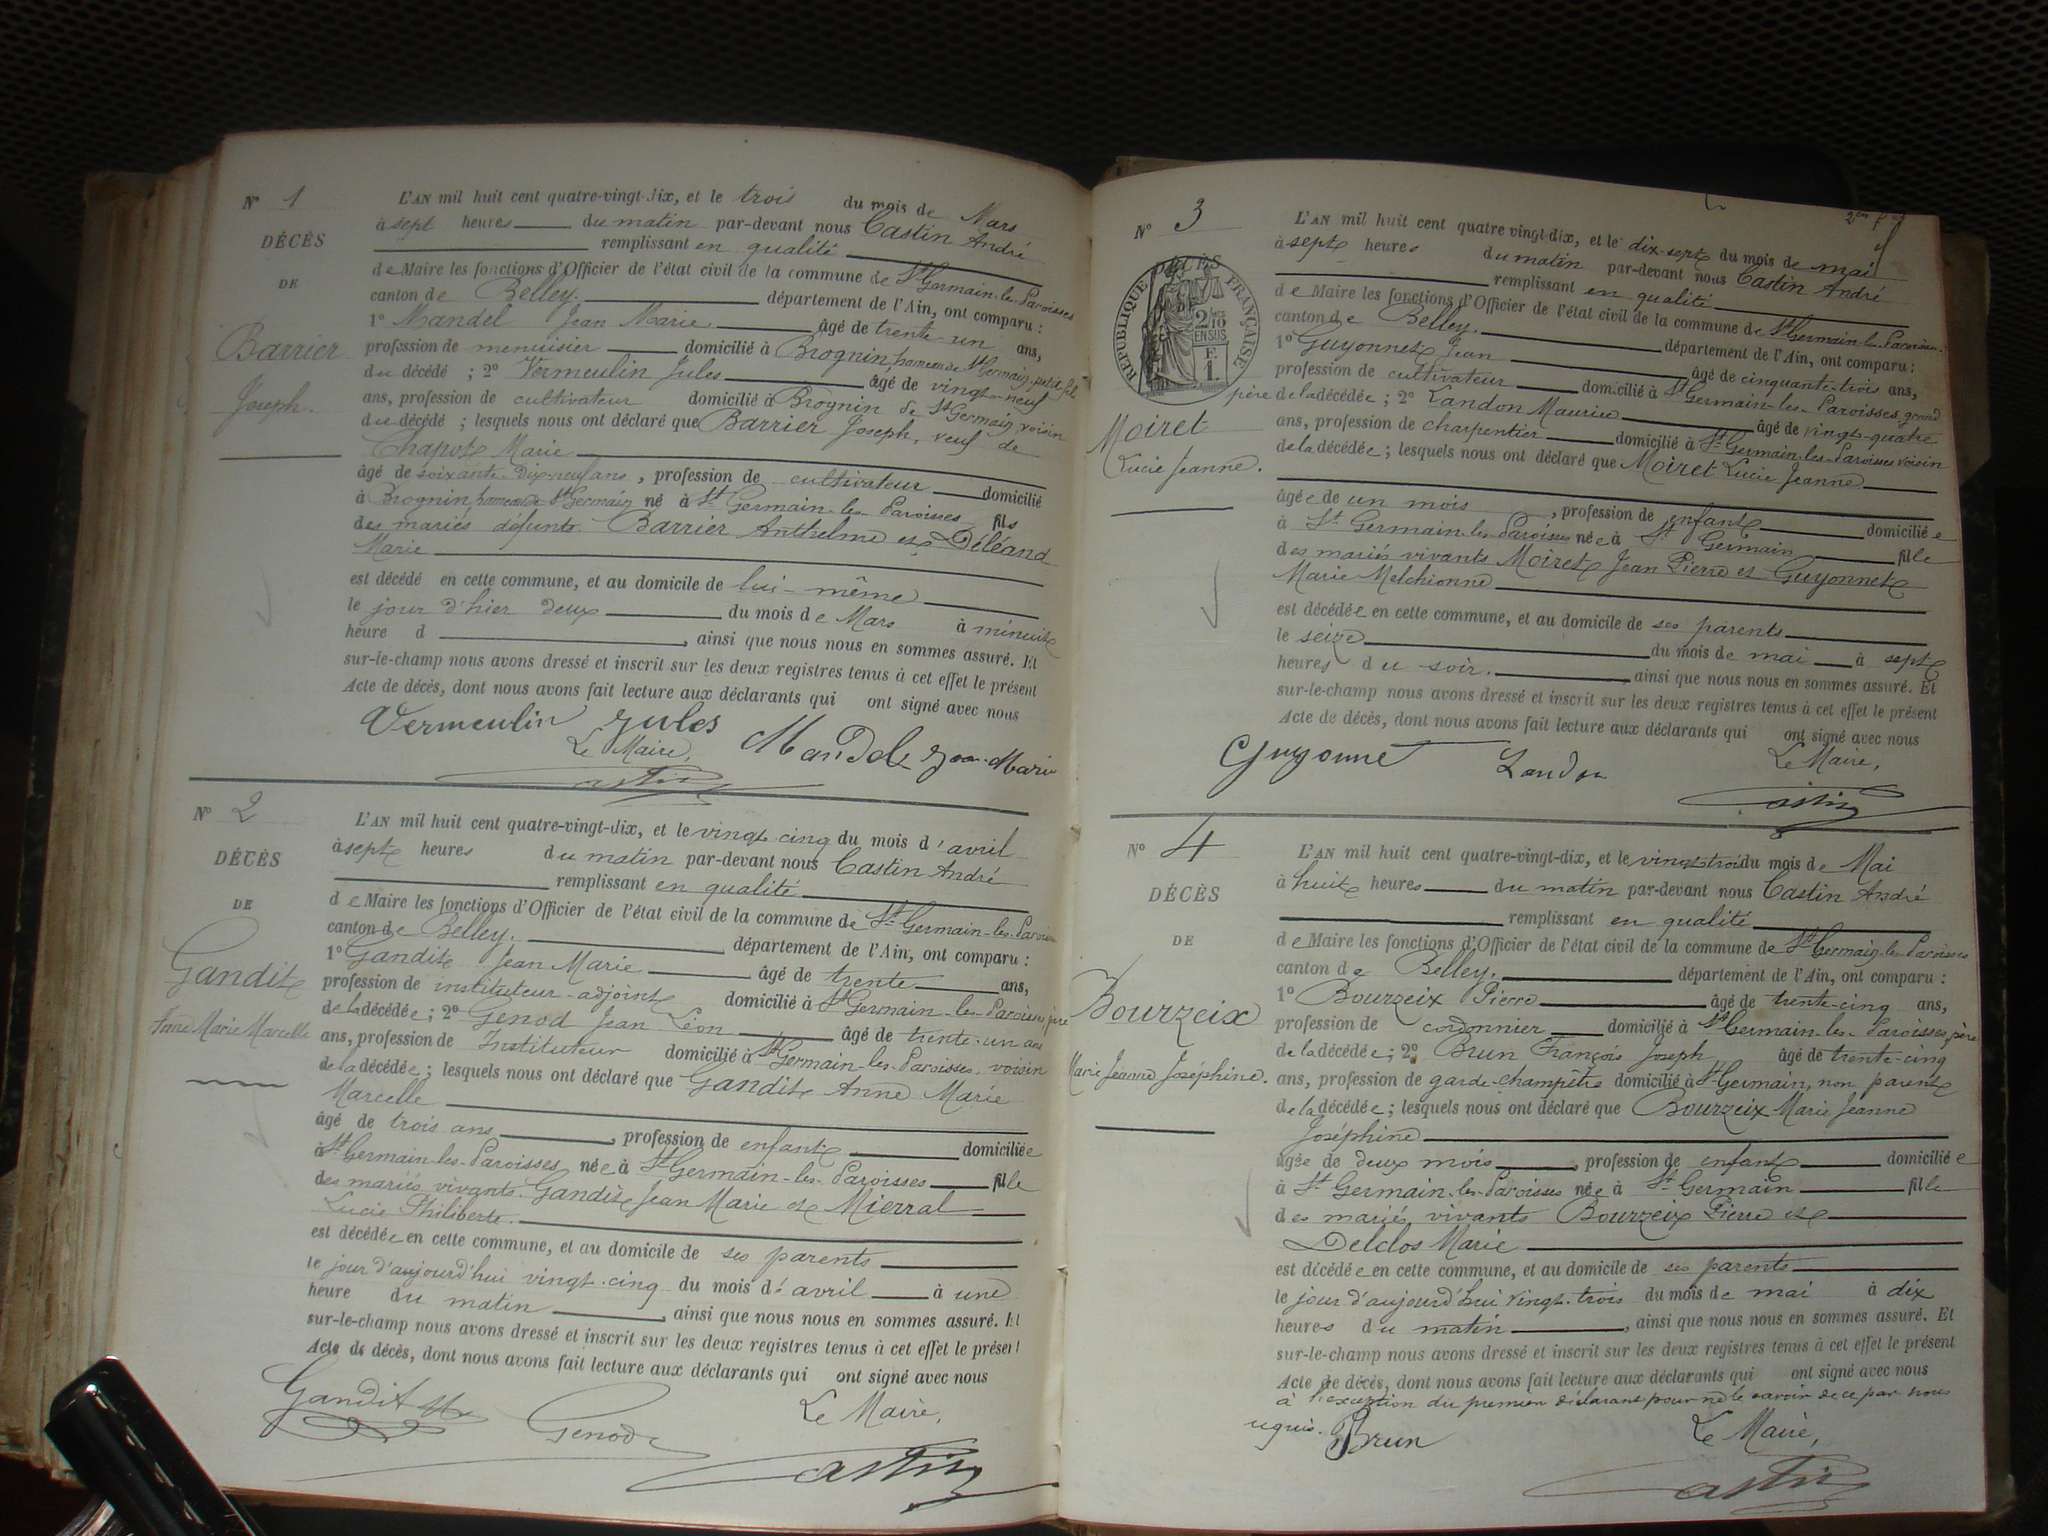 N° 1
DÉCÈS
DE
Barrier
Joseph.
L'AN mil huit cent quatre-vingt-dix, et le trois du mois de Mars
à sept heures du matin par-devant nous Castin André
remplissant en qualité
de Maire les fonctions d'Officier de l'état civil de la commune de St Germain-les-Paroisses
canton de Belley. département de l'Ain, ont comparu :
1° Mandel Jean Marie âgé de trente-un ans,
profession de menuisier domicilié à Brognin, hameau de St Germain, petit-fils
du décédé ; 2° Vermeulin Jules âgé de vingt-neuf
ans, profession de cultivateur domicilié à Brognin de St Germain, voisin
du décédé ; lesquels nous ont déclaré que Barrier Joseph, veuf de
Chapot Marie
âgé de soixante-dix-neuf ans, profession de cultivateur domicilié
à Brognin, hameau de St Germain né à St Germain-les-Paroisses fils
des mariés défunts Barrier Anthelme et Déléand
Marie
est décédé en cette commune, et au domicile de lui-même
le jour d'hier deux du mois de Mars à minuit
heure d , ainsi que nous nous en sommes assuré. Et
sur-le-champ nous avons dressé et inscrit sur les deux registres tenus à cet effet le présent
Acte de décès, dont nous avons fait lecture aux déclarants qui ont signé avec nous
Vermeulin Jules Mandel Jean-Marie
Le Maire,
Castin
N° 2
DÉCÈS
DE
Gandit
Anne Marie Marcelle
L'AN mil huit cent quatre-vingt-dix, et le vingt-cinq du mois d'avril
à sept heures du matin par-devant nous Castin André
remplissant en qualité
de Maire les fonctions d'Officier de l'état civil de la commune de St Germain-les-Paroisses
canton de Belley. département de l'Ain, ont comparu :
1° Gandit Jean Marie âgé de trente ans,
profession de instituteur-adjoint domicilié à St Germain-les-Paroisses père
de la décédée ; 2° Genod Jean Léon âgé de trente-un ans
ans, profession de Instituteur domicilié à St Germain-les-Paroisses, voisin
de la décédée ; lesquels nous ont déclaré que Gandit Anne Marie
Marcelle
âgé de trois ans, profession de enfant domiciliée
à St Germain-les-Paroisses née à St Germain-les-Paroisses fille
des mariés vivants Gandit Jean Marie et Mierral
Lucie Philiberte.
est décédée en cette commune, et au domicile de ses parents
le jour d'aujourd'hui vingt-cinq du mois d'avril à une
heure du matin, ainsi que nous nous en sommes assuré. Et
sur-le-champ nous avons dressé et inscrit sur les deux registres tenus à cet effet le présent
Acte de décès, dont nous avons fait lecture aux déclarants qui ont signé avec nous
Gandit Genod Le Maire,
Castin
2me f
N° 3
DÉCÈS
RÉPUBLIQUE FRANÇAISE
2/10 EN SUS
F. 1.
Moiret
Lucie Jeanne.
L'AN mil huit cent quatre vingt-dix, et le dix-sept du mois de mai
à sept heures du matin par-devant nous Castin André
remplissant en qualité
de Maire les fonctions d'Officier de l'état civil de la commune de St Germain-les-Paroisses
canton de Belley. département de l'Ain, ont comparu :
1° Guyonnet Jean âgé de cinquante-trois ans,
profession de cultivateur domicilié à St Germain-les-Paroisses, grand
père de la décédée ; 2° Landon Maurice âgé de vingt-quatre
ans, profession de charpentier domicilié à St Germain-les-Paroisses voisin
de la décédée ; lesquels nous ont déclaré que Moiret Lucie Jeanne
âgée de un mois, profession de enfant domiciliée
à St Germain-les-Paroisses née à St Germain fille
des mariés vivants Moiret Jean Pierre et Guyonnet
Marie Melchionne
est décédée en cette commune, et au domicile de ses parents
le seize du mois de mai à sept
heures du soir. ainsi que nous nous en sommes assuré. Et
sur-le-champ nous avons dressé et inscrit sur les deux registres tenus à cet effet le présent
Acte de décès, dont nous avons fait lecture aux déclarants qui ont signé avec nous
Guyonnet Landon Le Maire,
Castin
N° 4
DÉCÈS
DE
Bourzeix
Marie Jeanne Joséphine.
L'AN mil huit cent quatre-vingt-dix, et le vingt-trois du mois de Mai
à huit heures du matin par-devant nous Castin André
remplissant en qualité
de Maire les fonctions d'Officier de l'état civil de la commune de St Germain-les-Paroisses
canton de Belley. département de l'Ain, ont comparu :
1° Bourzeix Pierre âgé de trente-cinq ans,
profession de cordonnier domicilié à St Germain-les-Paroisses, père
de la décédée ; 2° Brun François Joseph âgé de trente-cinq
ans, profession de garde-champêtre domicilié à St Germain, non parent
de la décédée ; lesquels nous ont déclaré que Bourzeix Marie Jeanne
Joséphine
âgée de deux mois, profession de enfant domiciliée
à St Germain-les-Paroisses née à St Germain fille
des mariés vivants Bourzeix Pierre et
Delclos Marie
est décédée en cette commune, et au domicile de ses parents
le jour d'aujourd'hui vingt-trois du mois de mai à dix
heures du matin, ainsi que nous nous en sommes assuré. Et
sur-le-champ nous avons dressé et inscrit sur les deux registres tenus à cet effet le présent
Acte de décès, dont nous avons fait lecture aux déclarants qui ont signé avec nous
à l'exception du premier déclarant pour ne le savoir de ce par nous
requis. Brun Le Maire,
Castin